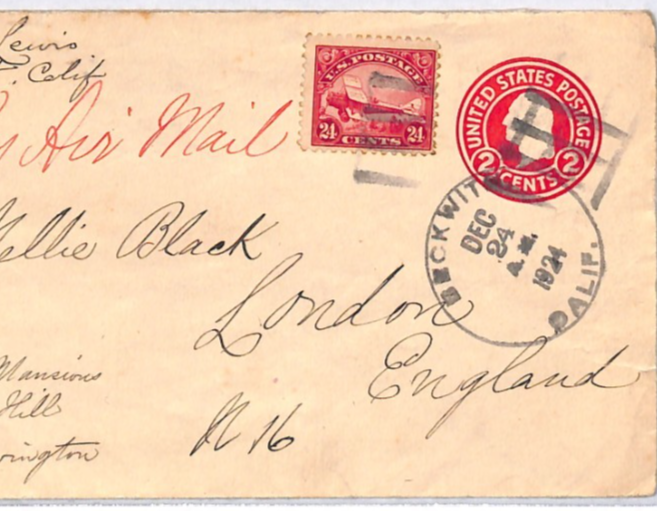 Lewis
Calif
Air Mail
U.S. POSTAGE
24 24
CENTS
UNITED STATES POSTAGE
2 CENTS 2
BECKWITH
DEC
24
A.M.
1924
CALIF.
Nellie Black
London
England
Mansions
Hill
N 16